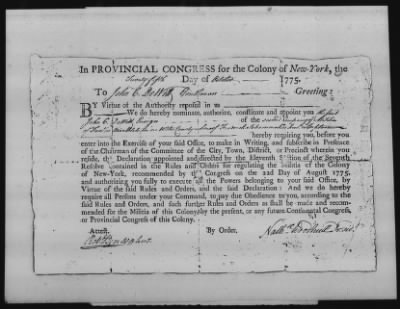 In PROVINCIAL CONGRESS for the Colony of New-York, the
Day of October 1775.
To John C. DeWitt, Gentleman Greeting:
BY Virtue of the Authority reposed in us
We do hereby nominate, authorize, constitute and appoint you
John C. DeWitt Company of Militia
hereby requiring you, before you
enter into the Exercise of your said Office, to make in Writing, and subscribe in Presence
of the Chairman of the Committee of the City, Town, District, or Precinct wherein you
reside, the Declaration appointed and directed by the Eleventh Section of the Seventh
Resolve contained in the Rules and Orders for regulating the Militia of the Colony
of New-York, recommended by this Congress on the 22d Day of August 1775,
and authorizing you fully to execute all the Powers belonging to your said Office, by
Virtue of the said Rules and Orders, and the said Declaration: And we do hereby
require all Persons under your Command, to pay due Obedience to you, according to the
said Rules and Orders, and such further Rules and Orders as shall be made and recom-
mended for the Militia of this Colony by the present, or any future Continental Congress,
or Provincial Congress of this Colony.
Attest. By Order,